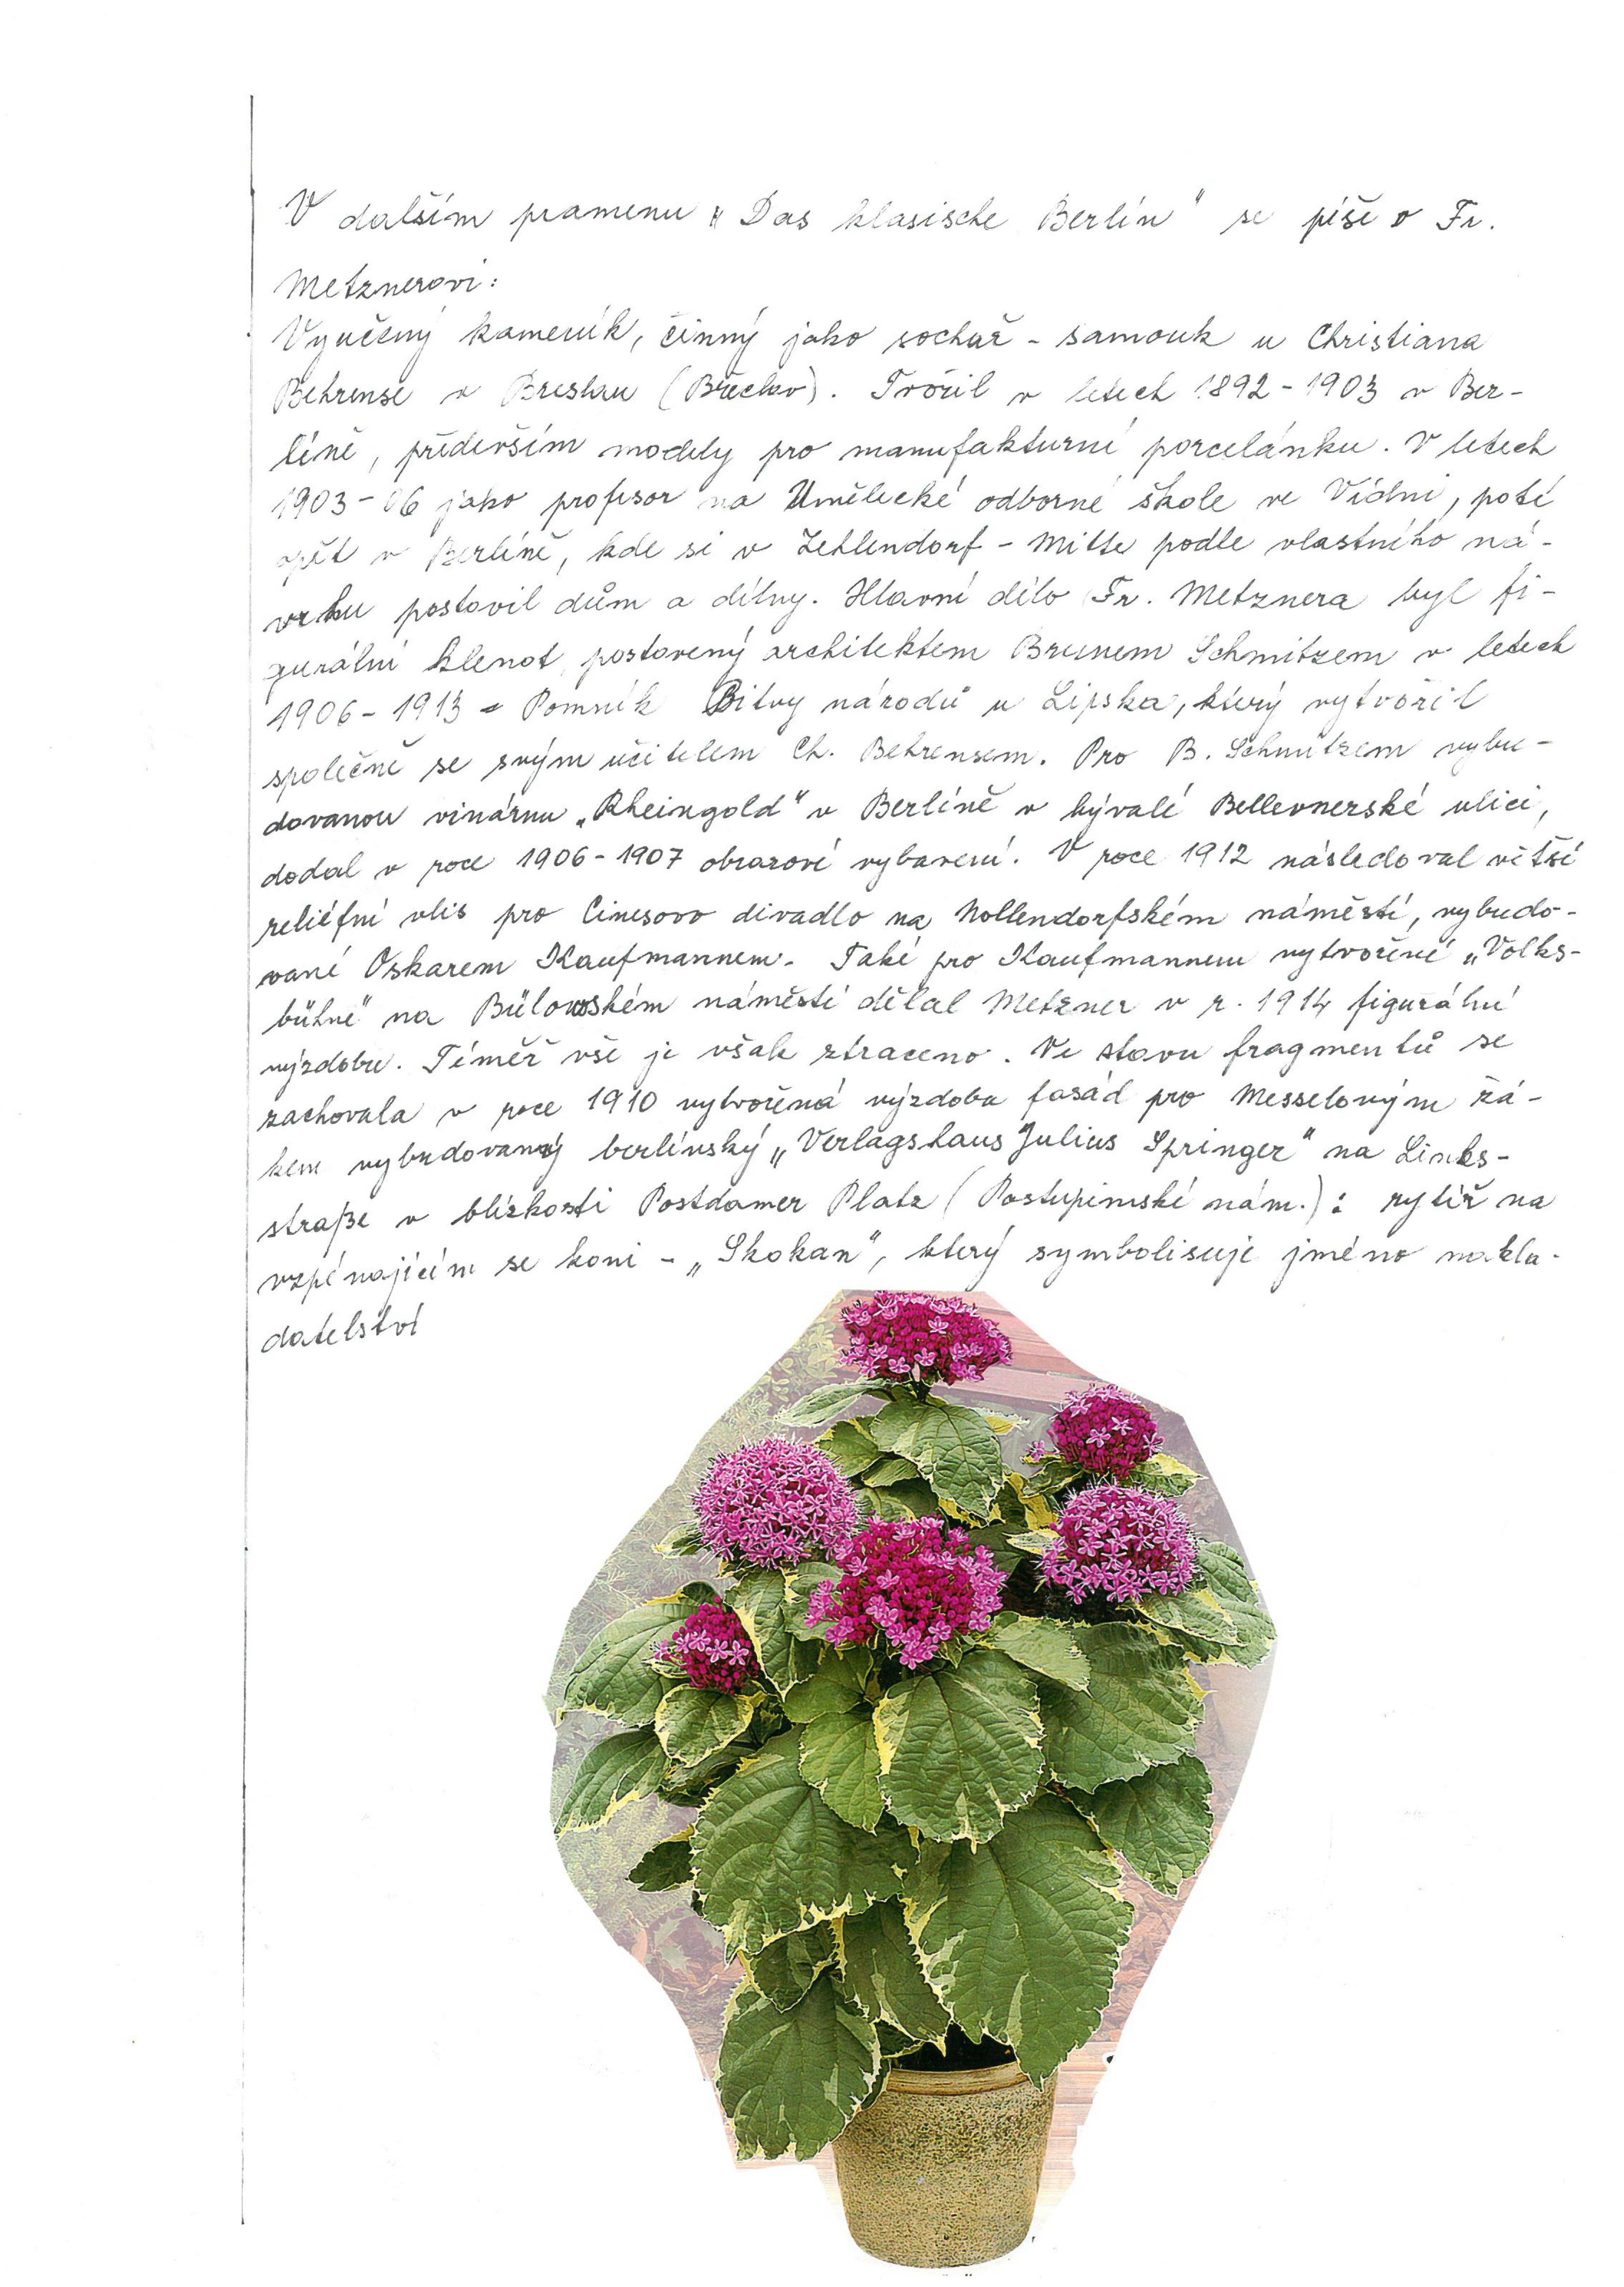 V dalším pramenu „Das klasische Berlin" se píše o Fr.
Metznerovi:
Vyučený kameník, činný jako sochař - samouk u Christiana
Behrense v Breslau (Břeclav). Tvořil v letech 1892-1903 v Ber-
líně, především modely pro manufakturní porcelánku. V letech
1903-06 jako profesor na Umělecké odborné škole ve Vídni, poté
opět v Berlíně, kde si v Zehlendorf - Mitte podle vlastního ná-
vrhu postavil dům a dílny. Hlavní dílo Fr. Metznera byl fi-
gurální klenot, postavený architektem Brunem Schmitzem v letech
1906-1913 - Pomník Bitvy národů u Lipska, který vytvořil
společně se svým učitelem Ch. Behrensem. Pro B. Schmitzem vybu-
dovanou vinárnu „Rheingold" v Berlíně v bývalé Bellevnerské ulici,
dodal v roce 1906-1907 obrazové vybavení. V roce 1912 následoval větší
reliéfní vlis pro Cinesovo divadlo na Nollendorfském náměstí, vybudo-
vané Oskarem Kaufmannem. Také pro Kaufmannem vytvořené „Volks-
bühne" na Bülowském náměstí dělal Metzner v r. 1914 figurální
výzdobu. Téměř vše je však ztraceno. Ve stavu fragmentů se
zachovala v roce 1910 vytvořená výzdoba fasád pro Messelovým žá-
kem vybudovaný berlínský „Verlagshaus Julius Springer" na Links-
straße v blízkosti Postdamer Platz (Postupimské nám.): rytíř na
vzpínajícím se koni - „Skokan", který symbolisuje jméno nakla-
datelství